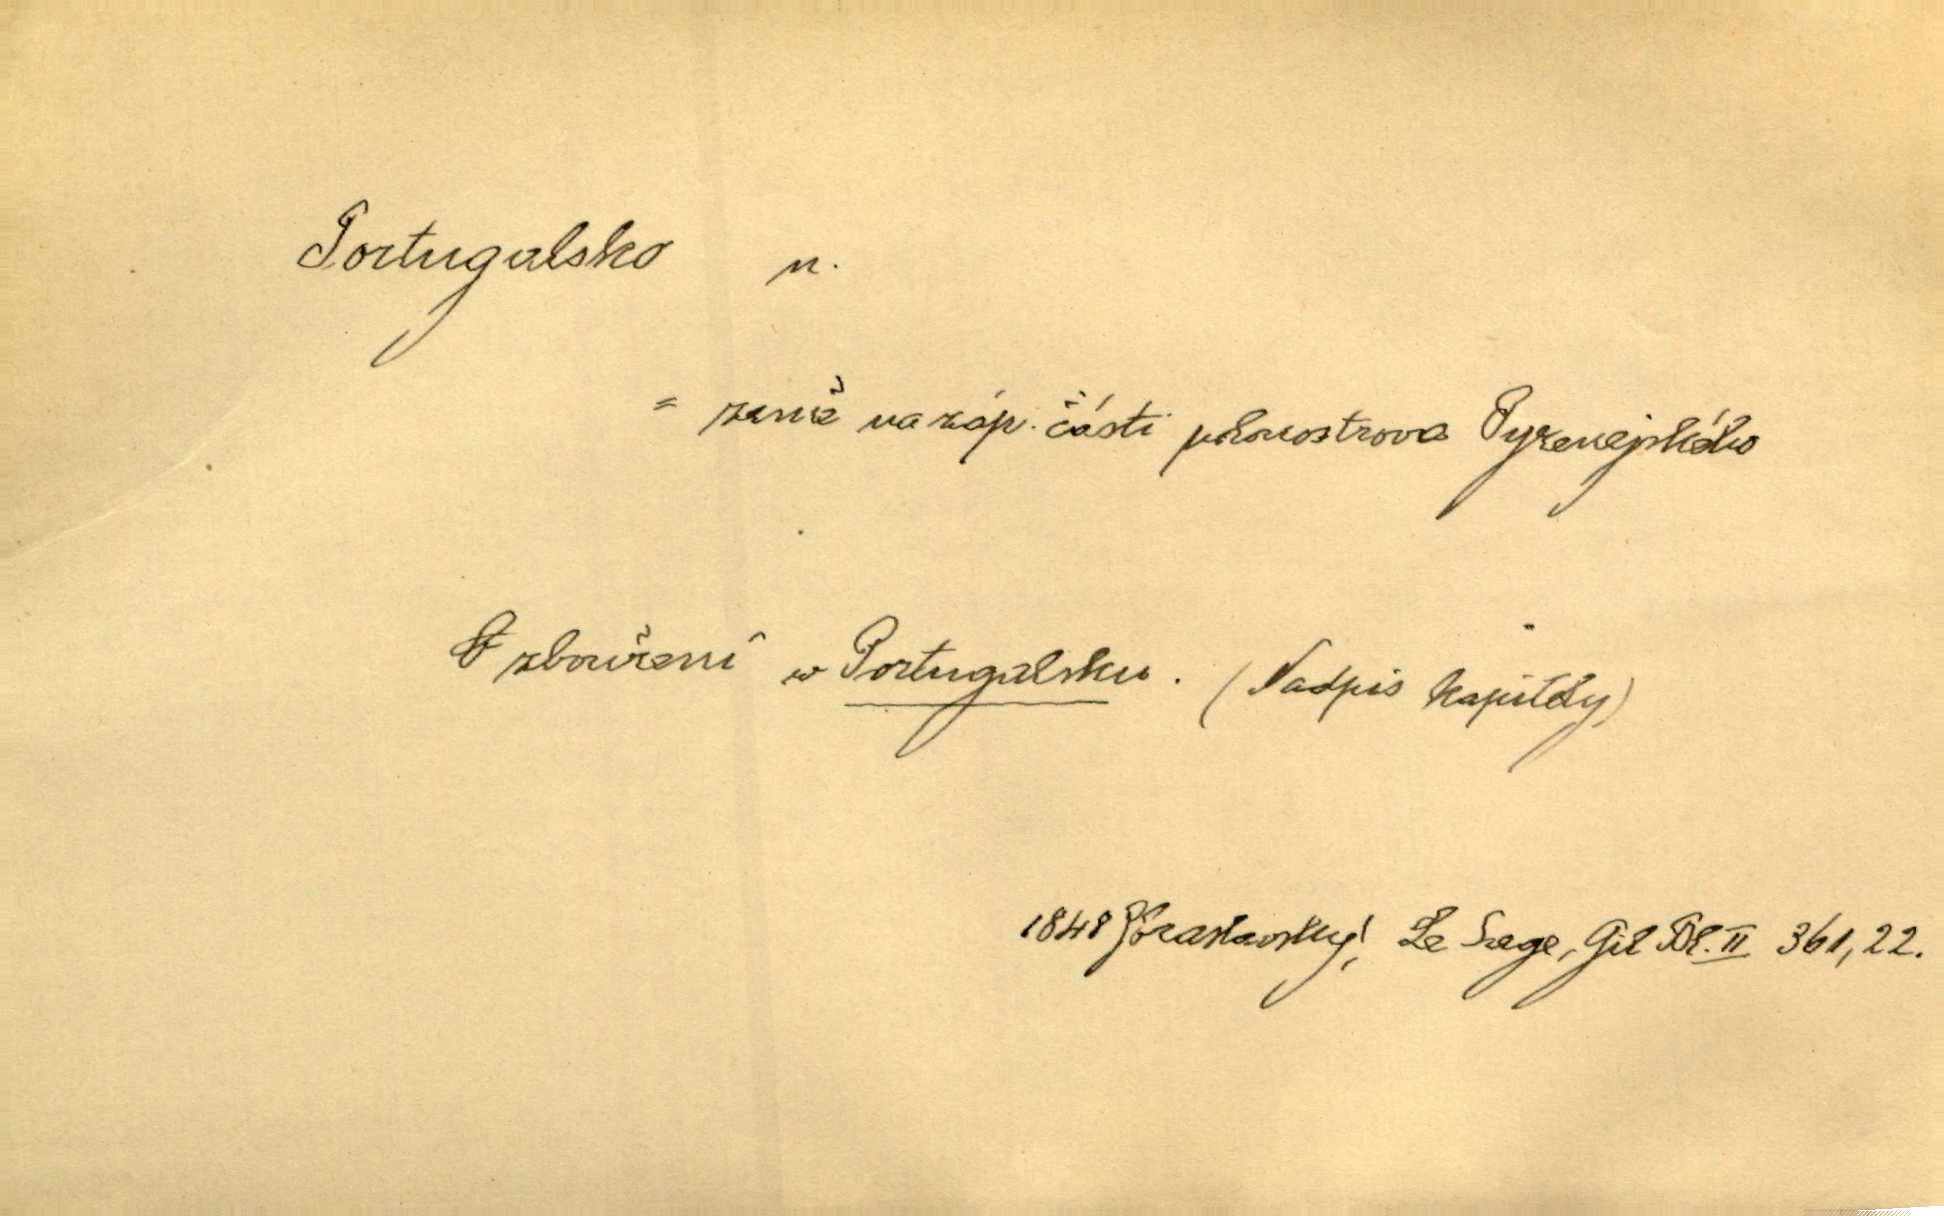 Portugalsko n.
= země na záp. části poloostrova Pyrenejského
O zbouření w Portugalsku. (Nadpis kapitoly)
1848 Le Sage, Gil Bl. II 361, 22.